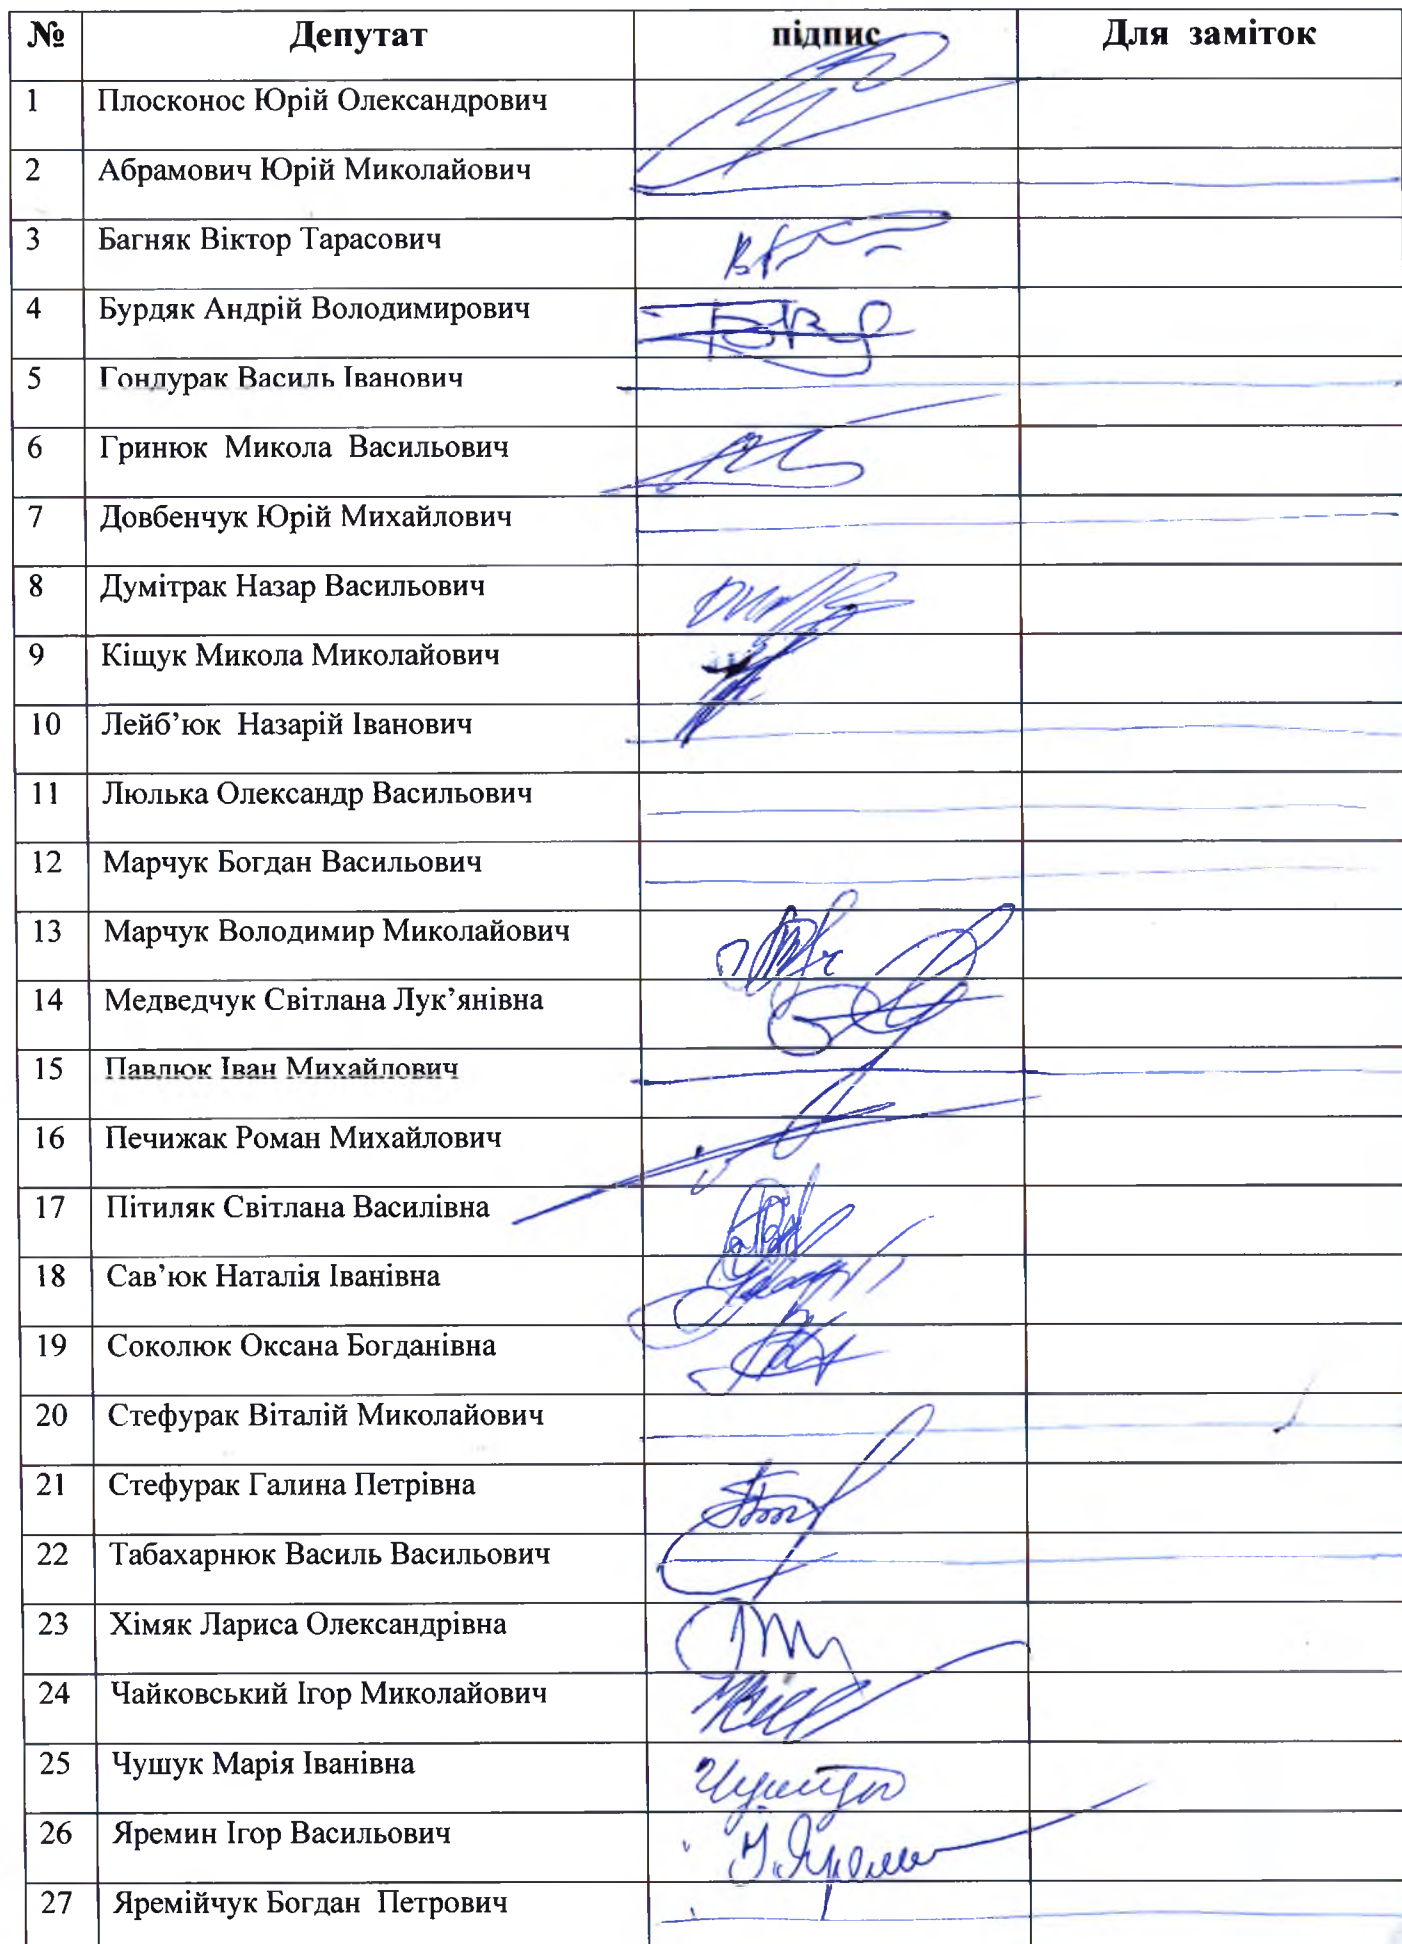 № Депутат підпис Для заміток
1 Плосконос Юрій Олександрович
2 Абрамович Юрій Миколайович
3 Багняк Віктор Тарасович
4 Бурдяк Андрій Володимирович
5 Гондурак Василь Іванович
6 Гринюк Микола Васильович
7 Довбенчук Юрій Михайлович
8 Думітрак Назар Васильович
9 Кіщук Микола Миколайович
10 Лейб’юк Назарій Іванович
11 Люлька Олександр Васильович
12 Марчук Богдан Васильович
13 Марчук Володимир Миколайович
14 Медведчук Світлана Лук’янівна
15 Павлюк Іван Михайлович
16 Печижак Роман Михайлович
17 Пітиляк Світлана Василівна
18 Сав’юк Наталія Іванівна
19 Соколюк Оксана Богданівна
20 Стефурак Віталій Миколайович
21 Стефурак Галина Петрівна
22 Табахарнюк Василь Васильович
23 Хімяк Лариса Олександрівна
24 Чайковський Ігор Миколайович
25 Чушук Марія Іванівна
26 Яремин Ігор Васильович
27 Яремійчук Богдан Петрович